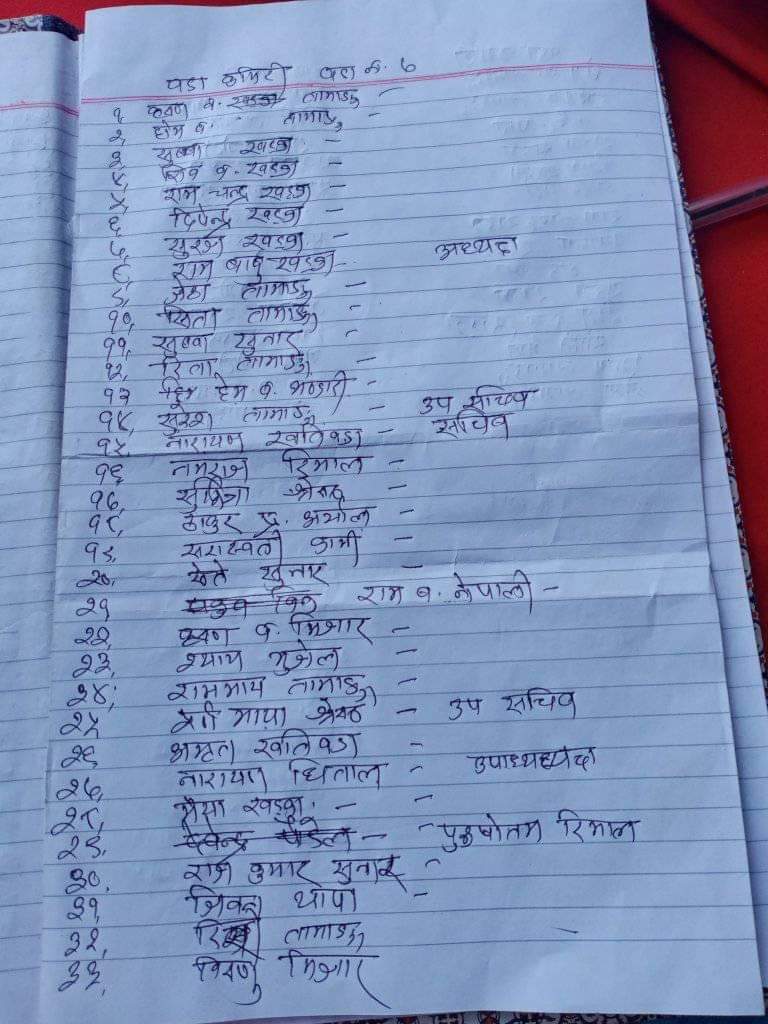 वडा कमिटी वडा नं. ७
१, कृष्ण ब. तामाङ्ग -
२, होम ब. तामाङ्ग
३, सुब्बा खड्का -
४, शिव ब. खड्का -
५, राम चन्द्र खड्का -
६, दिपेन्द्र खड्का -
७, सुरेश खड्का -
८, राम बाबु खड्का - अध्यक्ष
९, जेठा तामाङ्ग -
१०, तामाङ्ग -
११, सुब्बा सुनार -
१२, रिता तामाङ्ग
१३ हेम ब. भण्डारी -
१४, सुरेश तामाङ्ग - उप सचिव
१५, नारायण खतिवडा - सचिव
१६ नमराज रिमाल -
१७, सुमित्रा श्रेष्ठ -
१८, ठाकुर प्र. अर्याल -
१९, सरास्वती कामी
२०, सुनार -
२१ राम ब. नेपाली -
२२, कृष्ण ब. मिजार -
२३, श्याम भुजेल -
२४, राममाय तामाङ्ग -
२५ माया श्रेष्ठ - उप सचिव
२६ अमृता खतिवडा -
२७, नारायण धिताल - उपाध्यक्ष
२८, मैया खड्का - -
२९, देवेन्द्र पौडेल - पुरुषोतम रिमाल
३०, राज कुमार सुनार -
३१, थापा -
३२, तामाङ्ग
३३, विष्णु मिजार